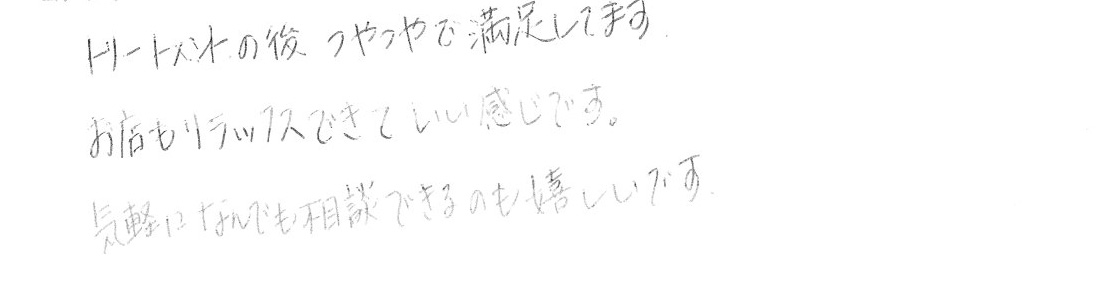 トリートメントの後 つやつやで満足してます.
お店もリラックスできていい感じです。
気軽になんでも相談できるのも嬉しいです.